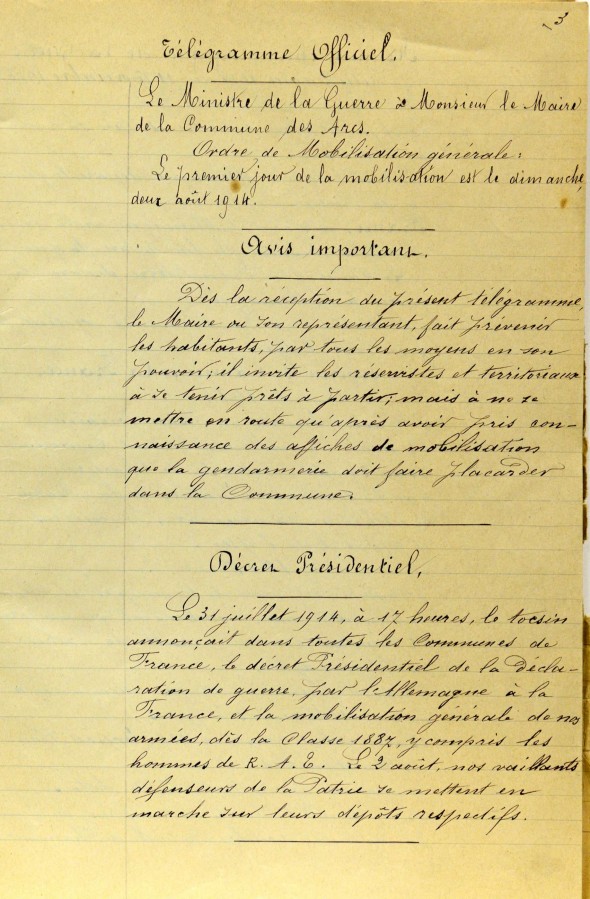 3
Télégramme Officiel.
Le Ministre de la Guerre à Monsieur le Maire
de la Commune des Arcs.
Ordre de Mobilisation générale :
Le premier jour de la mobilisation est le dimanche,
deux août 1914.
Avis important.
Dès la réception du présent télégramme,
le Maire ou son représentant, fait prévenir
les habitants, par tous les moyens en son
pouvoir; il invite les réservistes et territoriaux
à se tenir prêts à partir, mais à ne se
mettre en route qu'après avoir pris con-
naissance des affiches de mobilisation
que la gendarmerie doit faire placarder
dans la Commune.
Décret Présidentiel.
Le 31 juillet 1914, à 17 heures, le tocsin
annonçait dans toutes les Communes de
France, le décret Présidentiel de la Décla-
ration de guerre, par l'Allemagne à la
France, et la mobilisation générale de nos
armées, dès la Classe 1887, y compris les
hommes de R. A. T. Le 2 août, nos vaillants
défenseurs de la Patrie se mettent en
marche sur leurs dépôts respectifs.